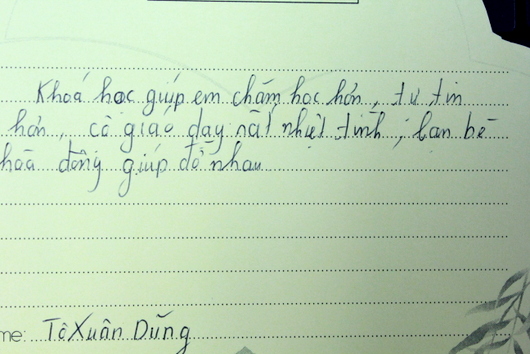 Khoá học giúp em chăm học hơn, tự tin
hơn, cô giáo dạy rất nhiệt tình, bạn bè
hoà đồng giúp đỡ nhau
me: Tô Xuân Dũng